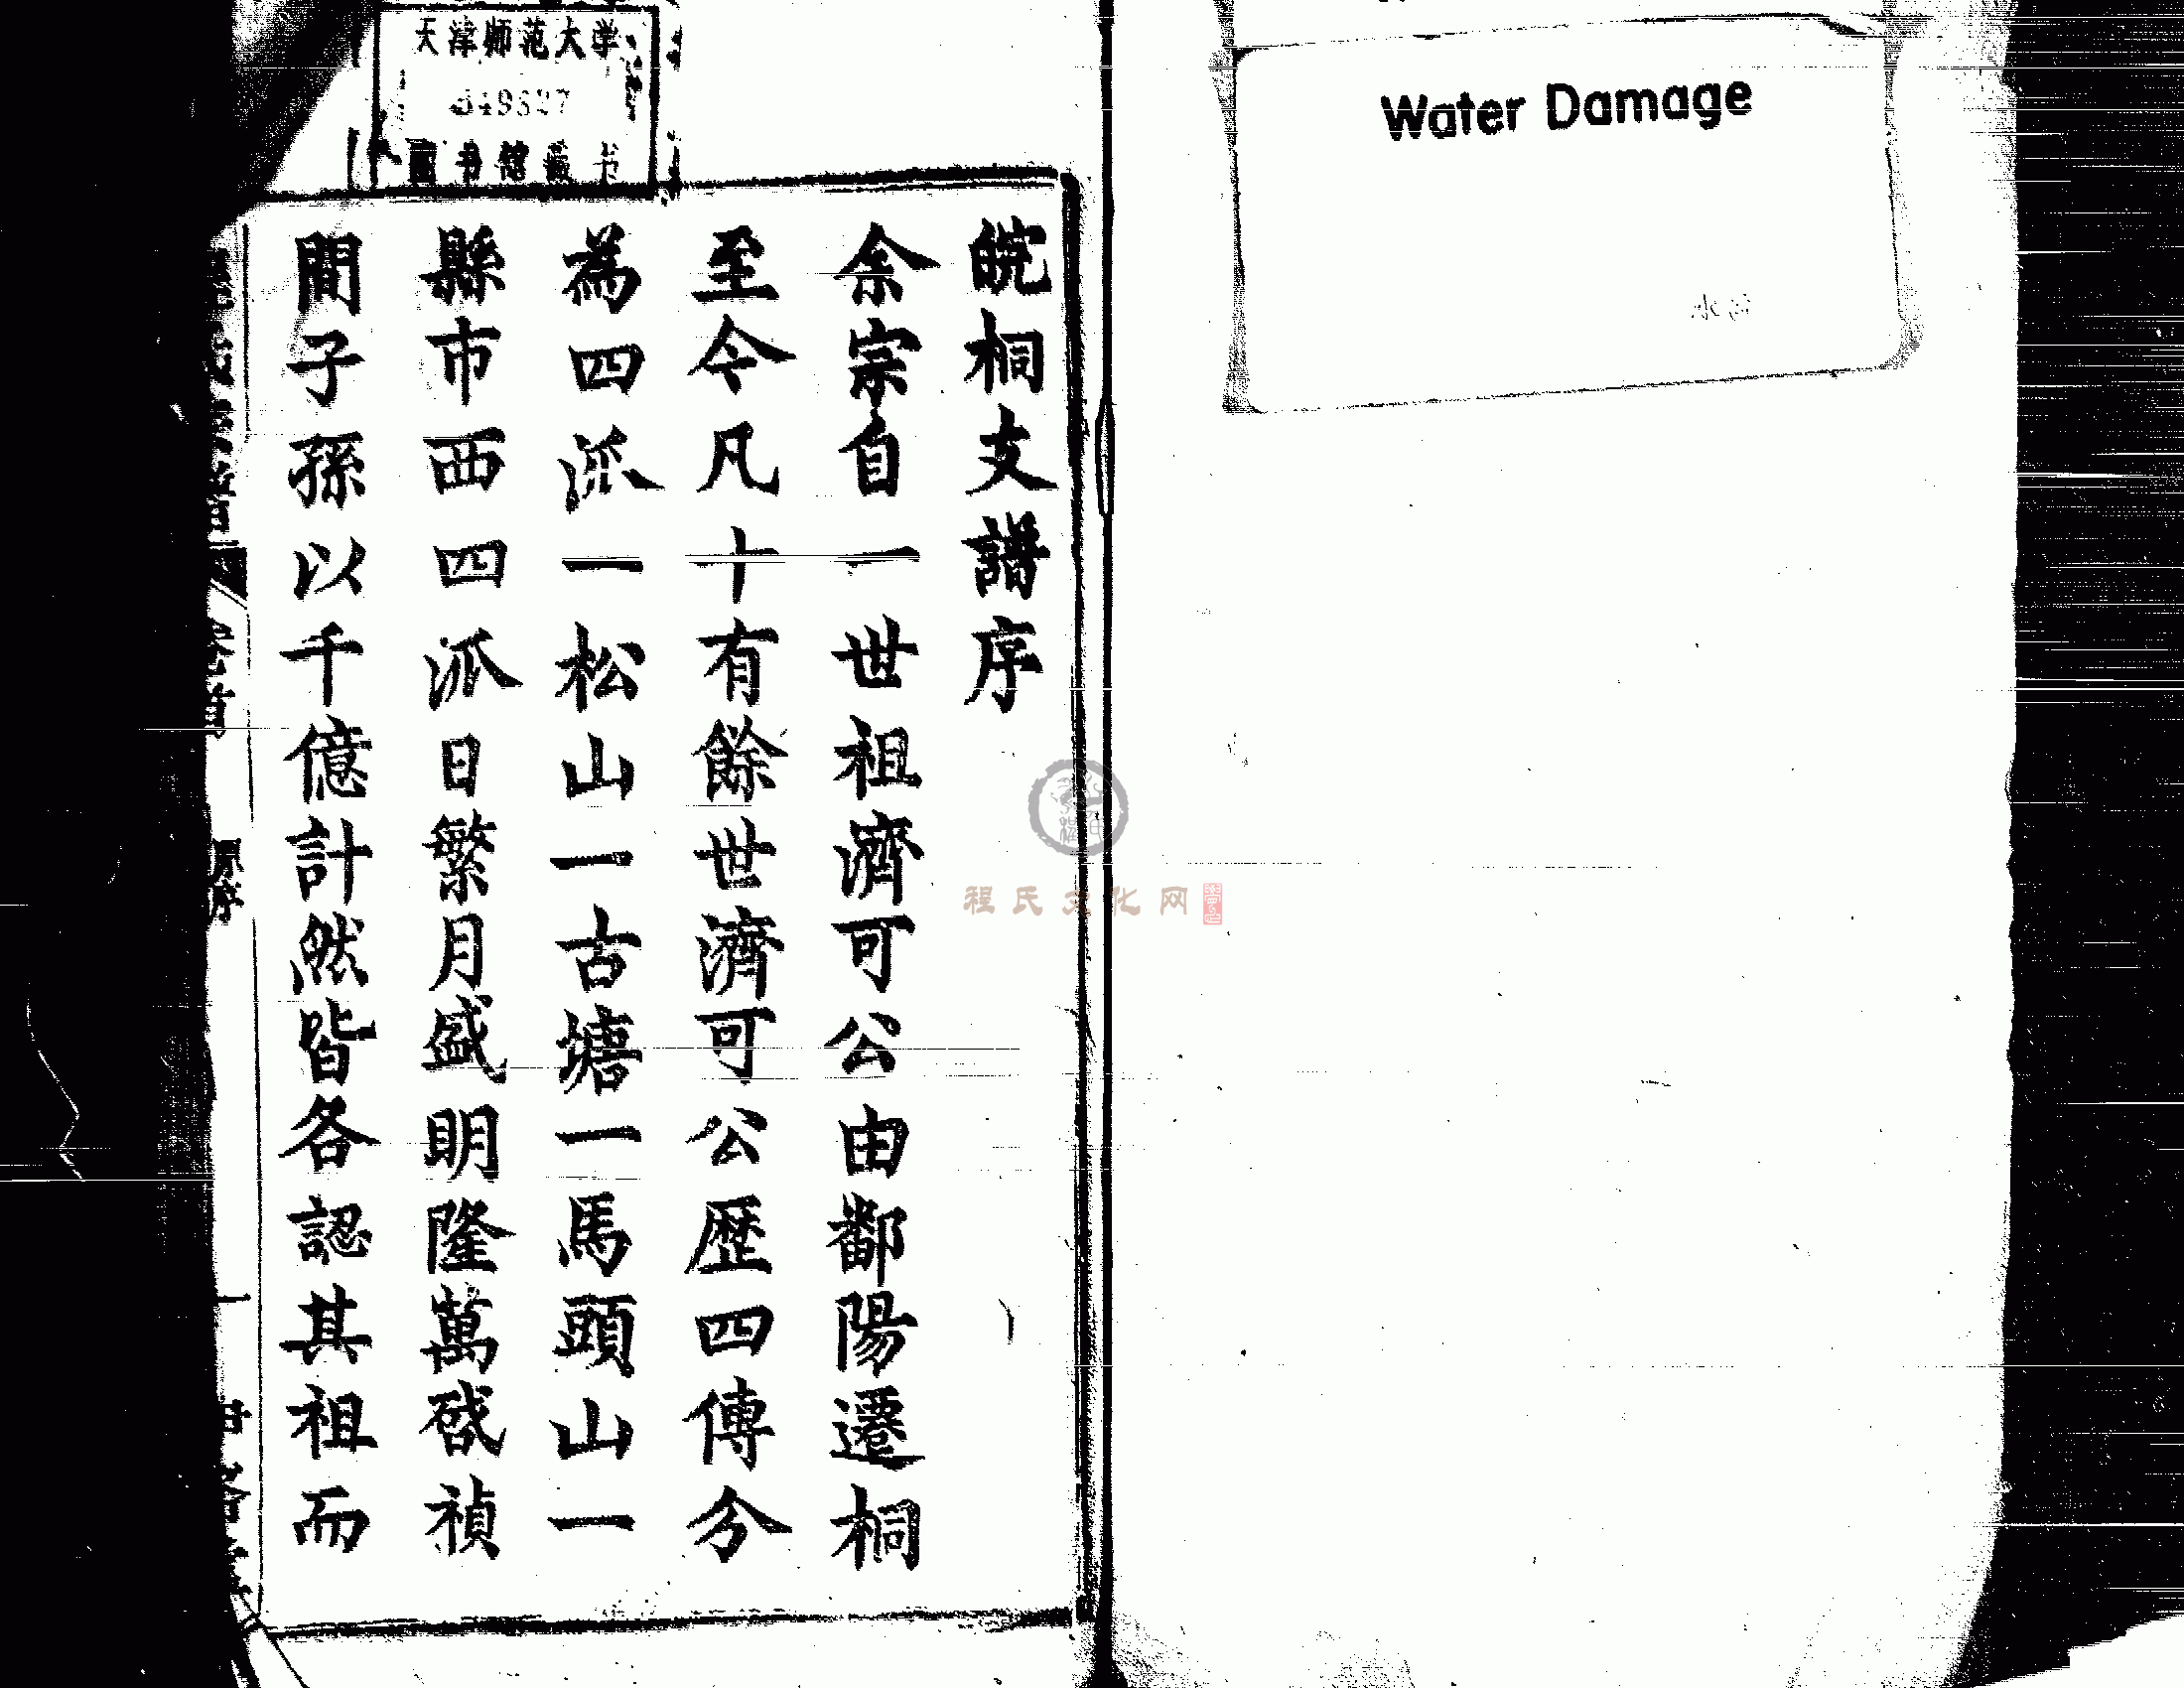 Water Damage
水渍
天津师范大学
图书馆藏书
皖桐支譜序
余宗自一世祖濟可公由鄱陽遷桐
至今凡十有餘世濟可公歷四傳分
為四派一松山一古塘一馬頭山一
縣市西四派日繁月盛明隆萬啟禎
間子孫以千億計然皆各認其祖而
原序
一
程氏文化网